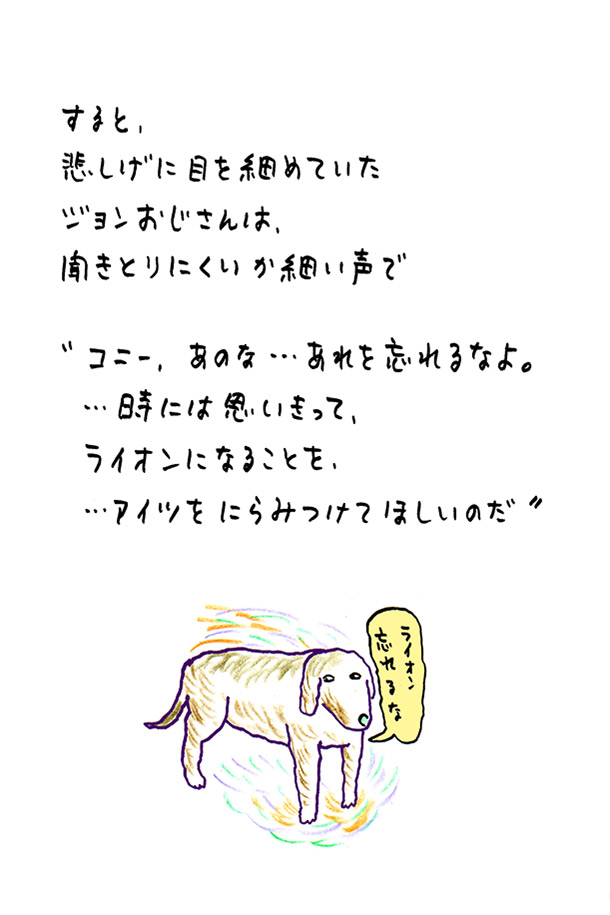 すると、
悲しげに目を細めていた
ジョンおじさんは、
聞きとりにくいか細い声で
〝コニー、あのな…あれを忘れるなよ。
…時には思いきって、
ライオンになることを、
…アイツをにらみつけてほしいのだ〞
ライオン
忘れるな